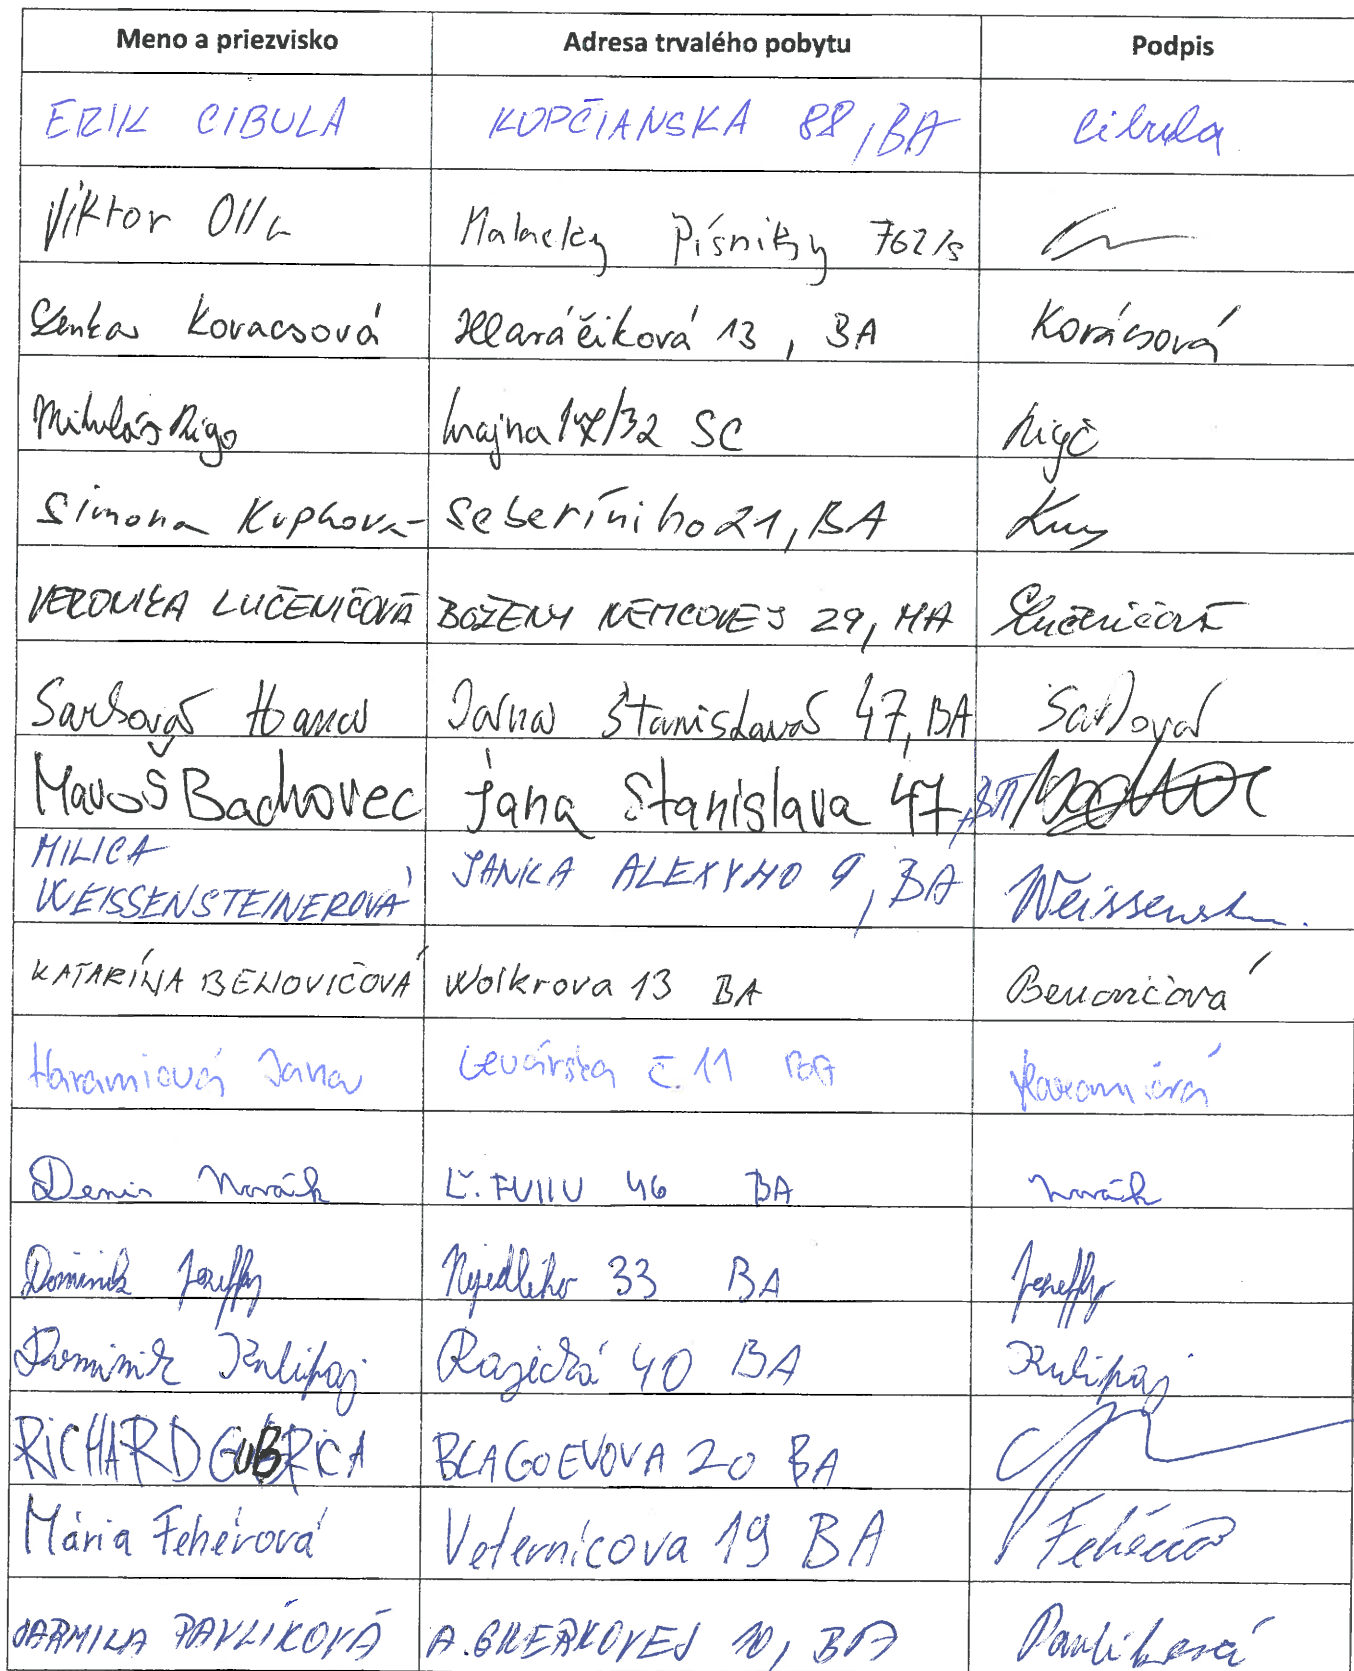 Meno a priezvisko Adresa trvalého pobytu Podpis
ERIK CIBULA KOPČIANSKA 88, BA Cibula
Viktor Olla Malacky Písniky 762/s
Lenka Kovacsová Hlaváčiková 13, BA Kovácsová
Mikuláš Rigo krajna 32 SC Rigo
Simona Kupkova Seberíniho 21, BA
VERONIKA LUČENIČOVÁ BOŽENY NEMCOVEJ 29, MA Lučeničová
Sarková Hana Jána Stanislava 47, BA Sarková
Maroš Bachovec Jana Stanislava 47, BA
MILICA
WEISSENSTEINEROVÁ JANKA ALEXYHO 9, BA Weissenst.
KATARÍNA BENOVIČOVÁ Wolkrova 13 BA Benovičová
Haramiová Jana Levárska č. 11 BA Haramiová
Denis Novák Ľ. FULLU 46 BA Novák
Dominik Jozeffy Nejedlého 33 BA Jozeffy
Dominik Kulifaj 40 BA Kulifaj
RICHARD GUBRICA BLAGOEVOVA 20 BA
Mária Fehérová Veternicova 19 BA Fehérová
JARMILA PAVLÍKOVÁ A. GWERKOVEJ 10, BA Pavlíková